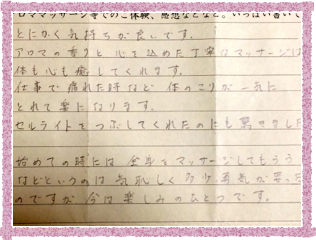 ロママッサージ等でのご体験、感想などなど。いっぱい書いて
とにかく気持ちが良いです。
アロマの香りと心を込めた丁寧なマッサージは
体も心も癒してくれます。
仕事で疲れた時など体のこりが一気に
とれて楽になります。
セルライトをつぶしてくれたのにも驚きました
始めての時には全身をマッサージしてもらう
などというのは気恥しく多少勇気が要った
のですが今は楽しみのひとつです。